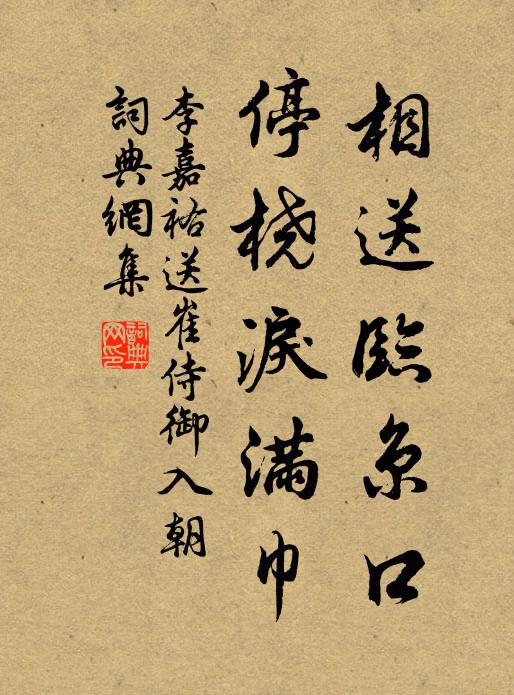 相送臨京口
停橈淚滿巾
李嘉祐送崔侍御入朝
詞典網集
詞典网印